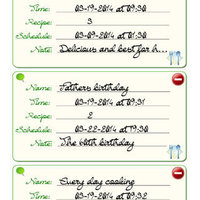 Time: 03-19-2014 at 09:30
Recipe: 3
Schedule: 03-09-2014 at 09:30
Note: Delicious and best for h...
Name: Fathers birthday
Time: 03-19-2014 at 09:31
Recipe: 2
Schedule: 03-22-2014 at 19:30
Note: The 60th birthday
Name: Every day cooking
Time: 03-19-2014 at 09:32